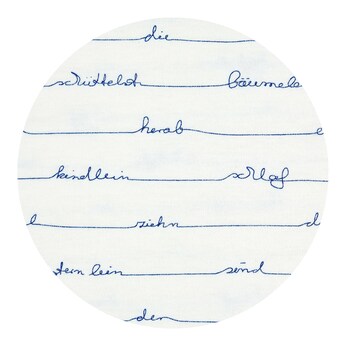 die
schüttelt bäumele
herab e
kindlein schlaf
l ziehn d
tern lein sind
der